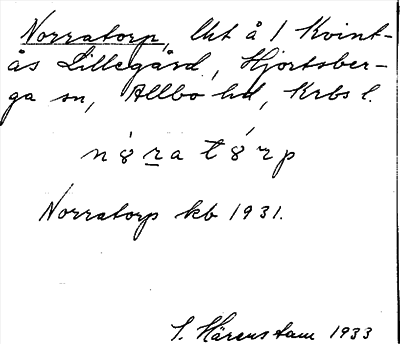 Norratorp, lht å 1 Kvint-
ås Lillegård, Hjortsber-
ga sn, Allbo hd, Krbs l.
n ȣ́ r a t ȣ́ r p
Norratorp kb 1931.
S. Härenstam 1933